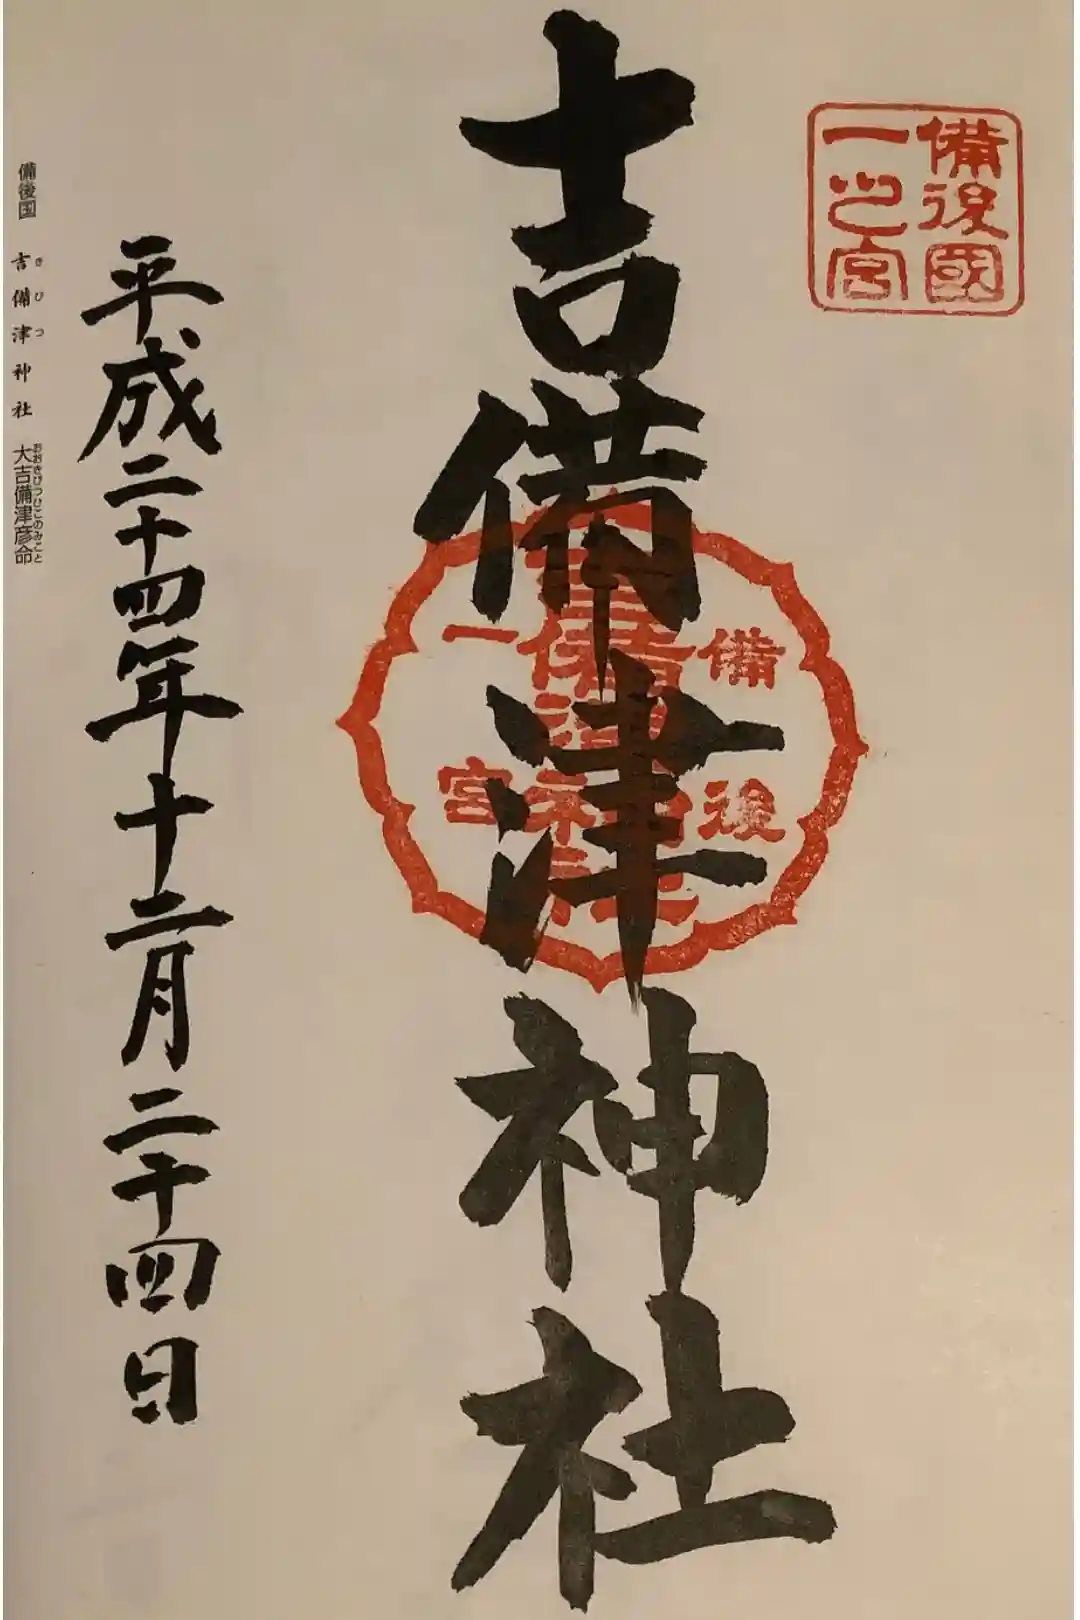 備後國
一之宮
吉備津神社
備後
吉備津神社
一宮
平成二十四年十二月二十四日
備後国 吉備津神社 大吉備津彦命
きびつ
おおきびつひこのみこと